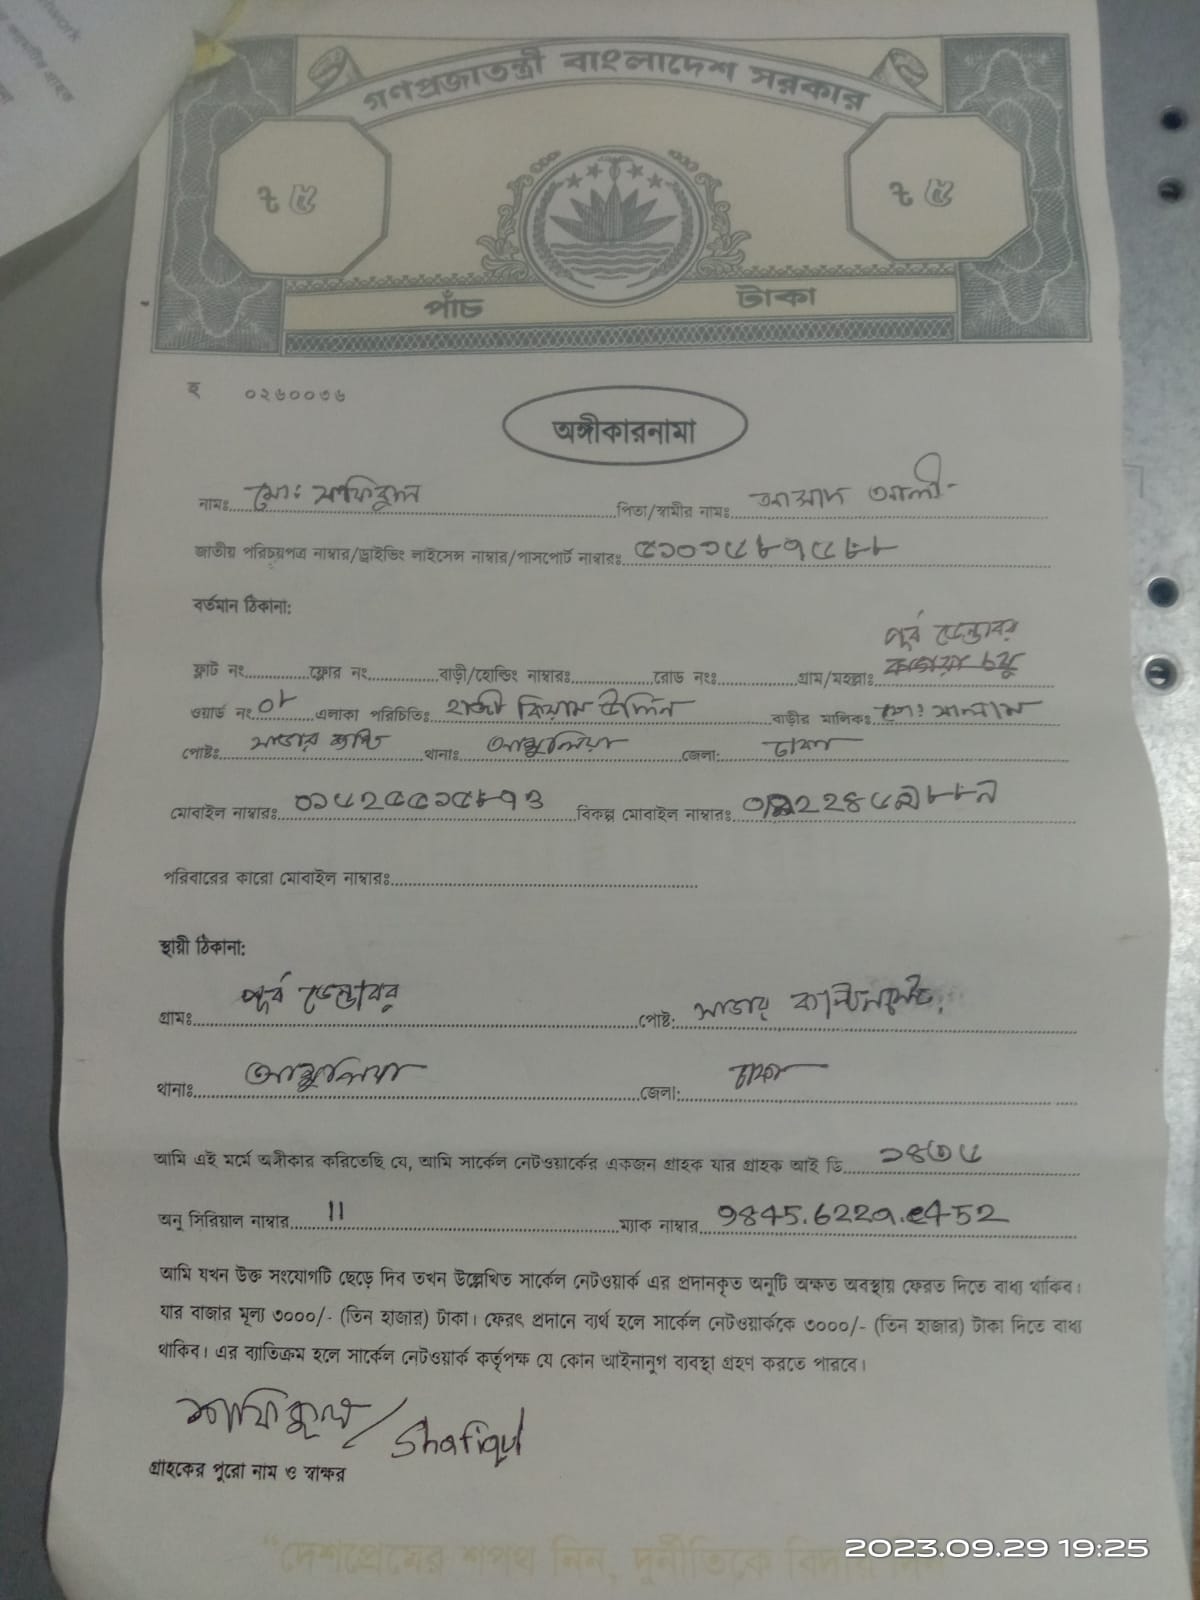 গণপ্রজাতন্ত্রী বাংলাদেশ সরকার
ট ৫ ট ৫
পাঁচ টাকা
হ ০২৬০০৩৬
অঙ্গীকারনামা
নামঃ মোঃ সাফিকুল পিতা/স্বামীর নামঃ আসাদ আলী
জাতীয় পরিচয়পত্র নাম্বার/ড্রাইভিং লাইসেন্স নাম্বার/পাসপোর্ট নাম্বারঃ ৫১০১৫৮৭৫৮৮
বর্তমান ঠিকানা:
পূর্ব ডেন্ডাবর
ফ্লাট নং ফ্লোর নং বাড়ী/হোল্ডিং নাম্বারঃ রোড নংঃ গ্রাম/মহল্লাঃ
ওয়ার্ড নং ০৮ এলাকা পরিচিতিঃ হাজী উদ্দিন বাড়ীর মালিকঃ মোঃ সালাম
পোষ্টঃ সাভার থানাঃ আশুলিয়া জেলা: ঢাকা
মোবাইল নাম্বারঃ বিকল্প মোবাইল নাম্বারঃ
পরিবারের কারো মোবাইল নাম্বারঃ
স্থায়ী ঠিকানা:
গ্রামঃ পূর্ব ডেন্ডাবর পোষ্ট: সাভার ক্যান্টনমেন্ট
থানাঃ আশুলিয়া জেলা: ঢাকা
আমি এই মর্মে অঙ্গীকার করিতেছি যে, আমি সার্কেল নেটওয়ার্কের একজন গ্রাহক যার গ্রাহক আই ডি
অনু সিরিয়াল নাম্বার 11 ম্যাক নাম্বার 9845.622a.e452
আমি যখন উক্ত সংযোগটি ছেড়ে দিব তখন উল্লেখিত সার্কেল নেটওয়ার্ক এর প্রদানকৃত অনুটি অক্ষত অবস্থায় ফেরত দিতে বাধ্য থাকিব।
যার বাজার মূল্য ৩০০০/- (তিন হাজার) টাকা। ফেরৎ প্রদানে ব্যর্থ হলে সার্কেল নেটওয়ার্ককে ৩০০০/- (তিন হাজার) টাকা দিতে বাধ্য
থাকিব। এর ব্যতিক্রম হলে সার্কেল নেটওয়ার্ক কর্তৃপক্ষ যে কোন আইনানুগ ব্যবস্থা গ্রহণ করতে পারবে।
সাফিকুল / Shafiqul
গ্রাহকের পুরো নাম ও স্বাক্ষর
"দেশপ্রেমের শপথ নিন, দুর্নীতিকে বিদায়
2023.09.29 19:25